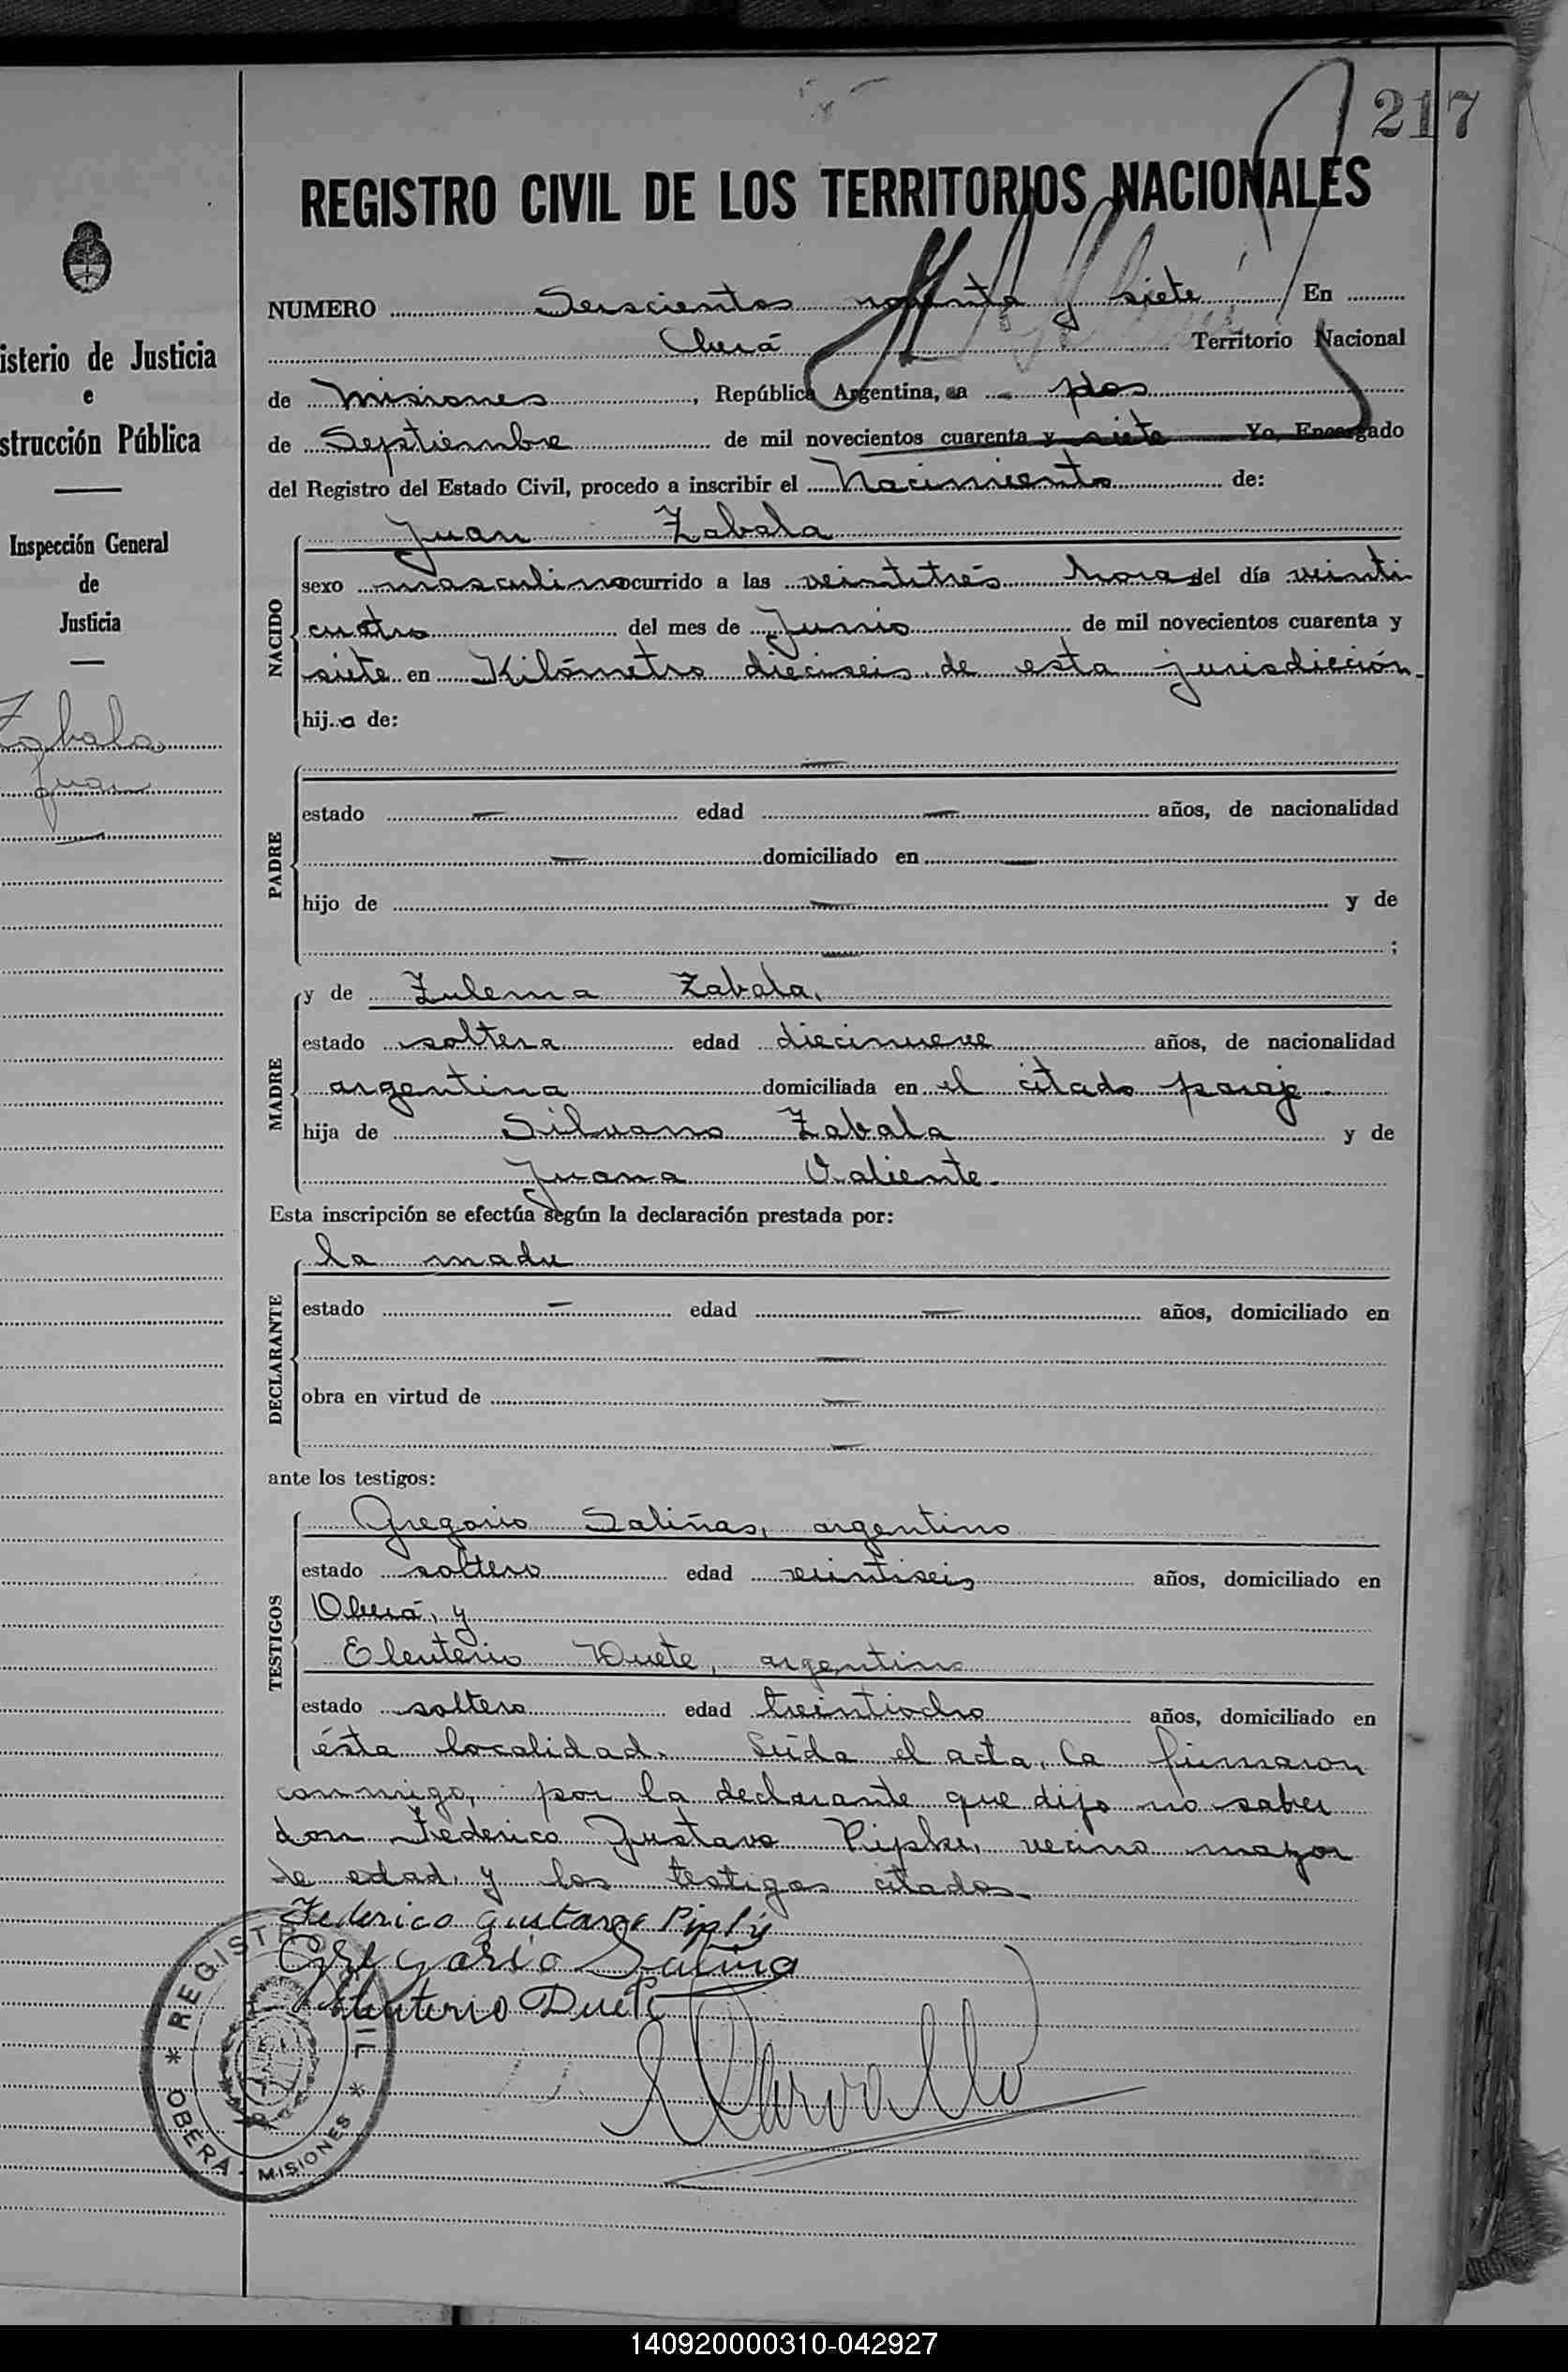 217
REGISTRO CIVIL DE LOS TERRITORIOS NACIONALES
isterio de Justicia
e
strucción Pública
Inspección General
de
Justicia
Zabala
Juan
NUMERO Seiscientos noventa y siete En
Oberá Territorio Nacional
de Misiones, República Argentina, a dos
de Septiembre de mil novecientos cuarenta y siete Yo, Encargado
del Registro del Estado Civil, procedo a inscribir el Nacimiento de:
NACIDO
Juan Zabala
sexo masculino ocurrido a las veintitrés horas del día veinti
cuatro del mes de Junio de mil novecientos cuarenta y
siete en Kilómetro dieciseis de esta jurisdicción
hijo de:
PADRE
estado — edad — años, de nacionalidad
— domiciliado en —
hijo de — y de
— ;
MADRE
y de Zulema Zabala,
estado soltera edad diecinueve años, de nacionalidad
argentina domiciliada en el citado paraje
hija de Silvano Zabala y de
Juana Valiente.
Esta inscripción se efectúa según la declaración prestada por:
DECLARANTE
la madre
estado — edad — años, domiciliado en
—
obra en virtud de —
—
ante los testigos:
TESTIGOS
Gregorio Saliñas, argentino
estado soltero edad veintiseis años, domiciliado en
Oberá, y
Eleuterio Duete, argentino
estado soltero edad treintiocho años, domiciliado en
ésta localidad. Leída el acta, la firmaron
conmigo, por la declarante que dijo no saber
don Federico Gustavo Pipke, vecino mayor
de edad, y los testigos citados.
Federico Gustavo
Gregorio Salina
Eleuterio Duete
REGISTRO CIVIL * OBERÁ - MISIONES *
140920000310-042927